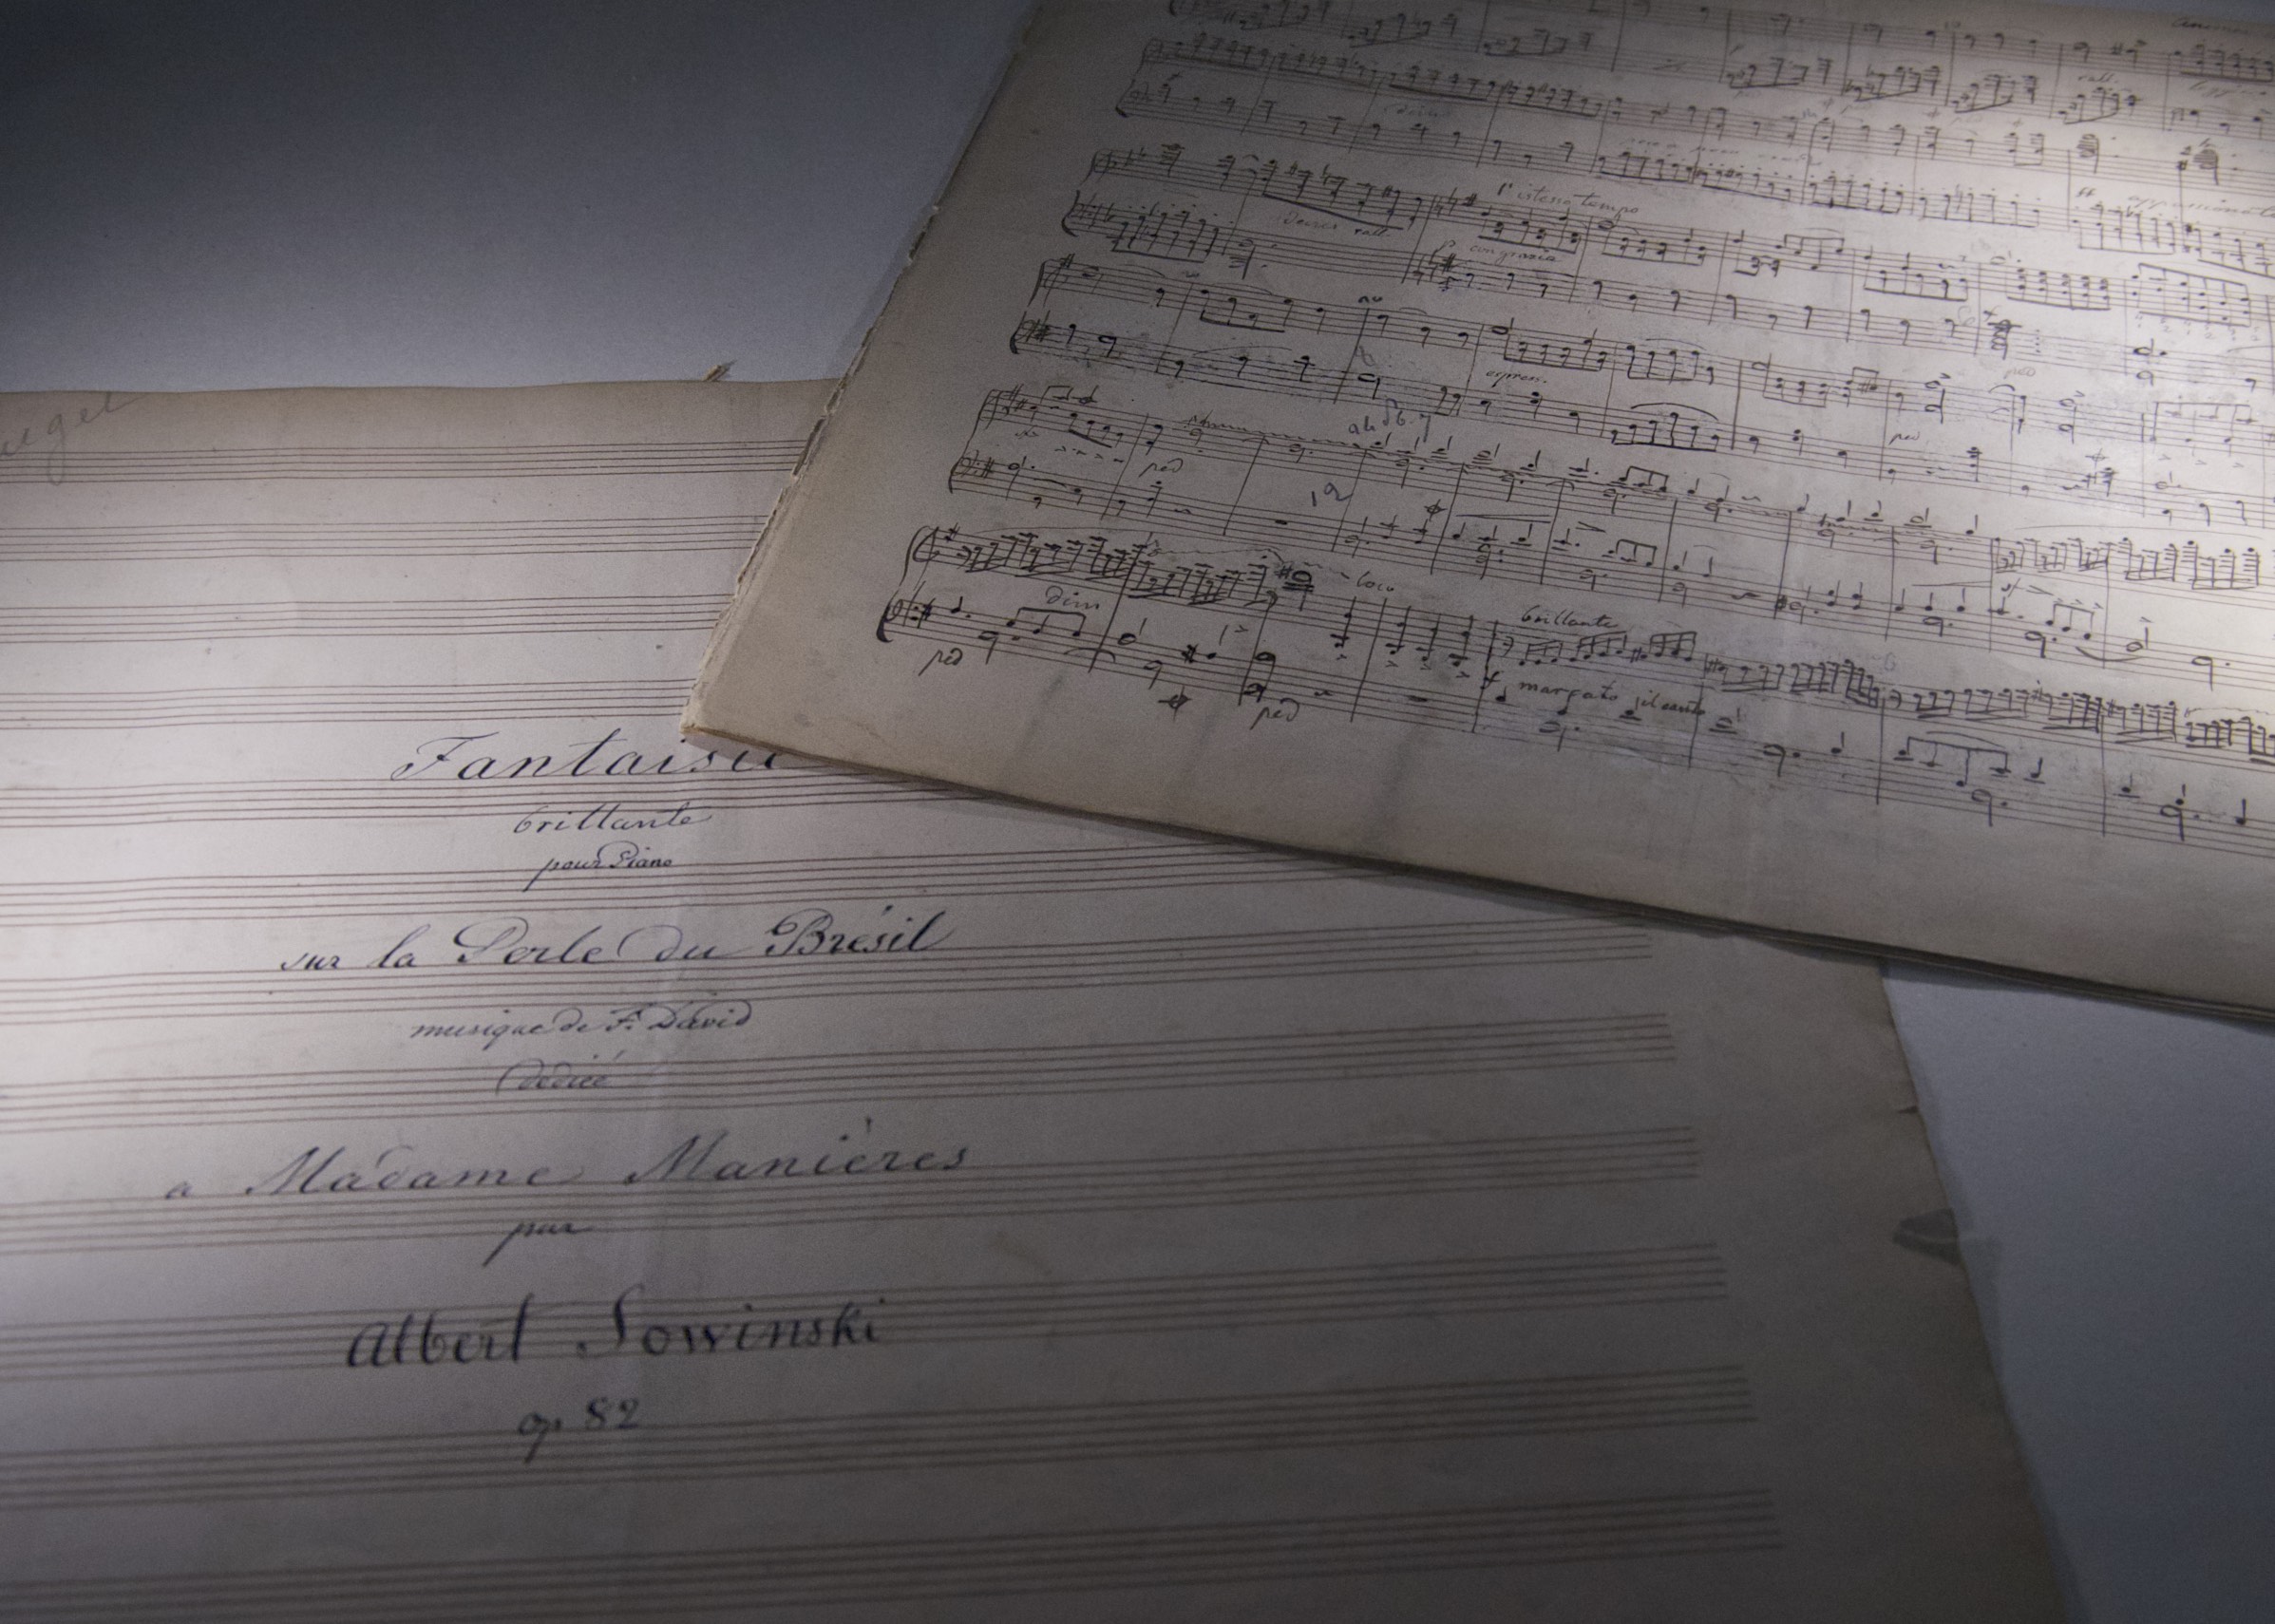 Fantaisie
brillante
pour Piano
sur la Perle du Brésil
musique de F. David
dédiée
a Madame Manières
par
Albert Sowinski
op. 82
rall.
dim
ff appassionato
1º istesso tempo
decres rall.
p con grazia
espres.
ped
ped
12
loco
dim
brillante
ped
ped
f marcato il canto